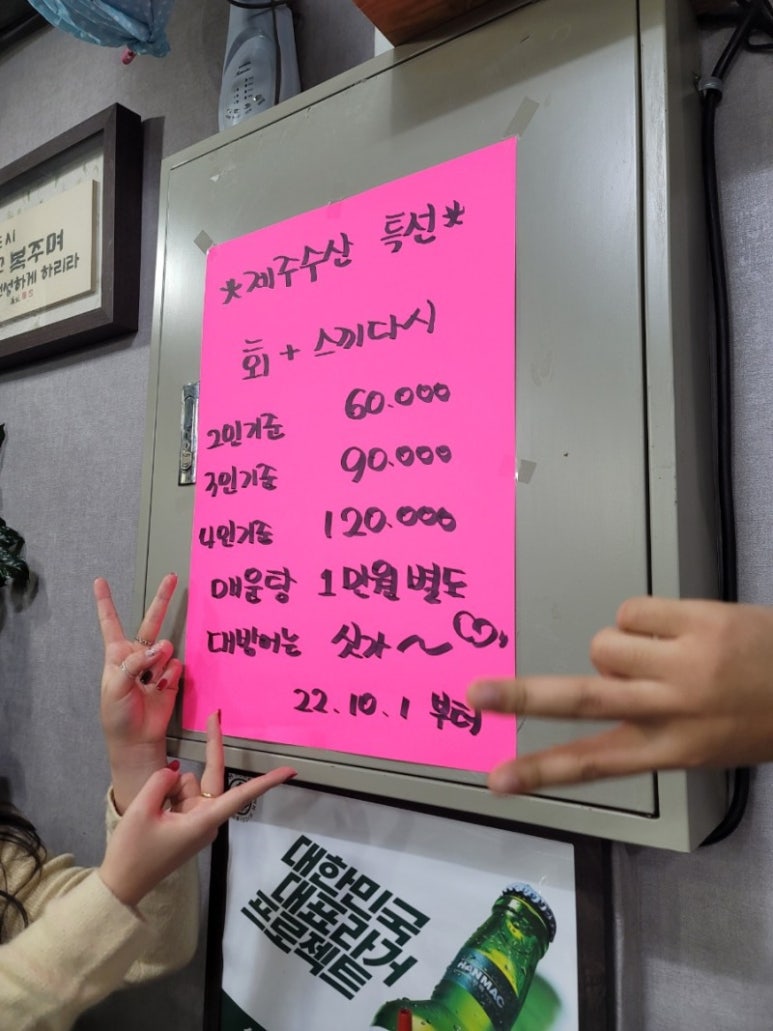 *제주수산 특선*
회 + 스끼다시
2인기준 60.000
3인기준 90.000
4인기준 120.000
매운탕 1만원 별도
대방어는 싯가~
22.10.1 부터
복주며
성하게 하리라
대한민국
대표라거
프로젝트
HANMAC